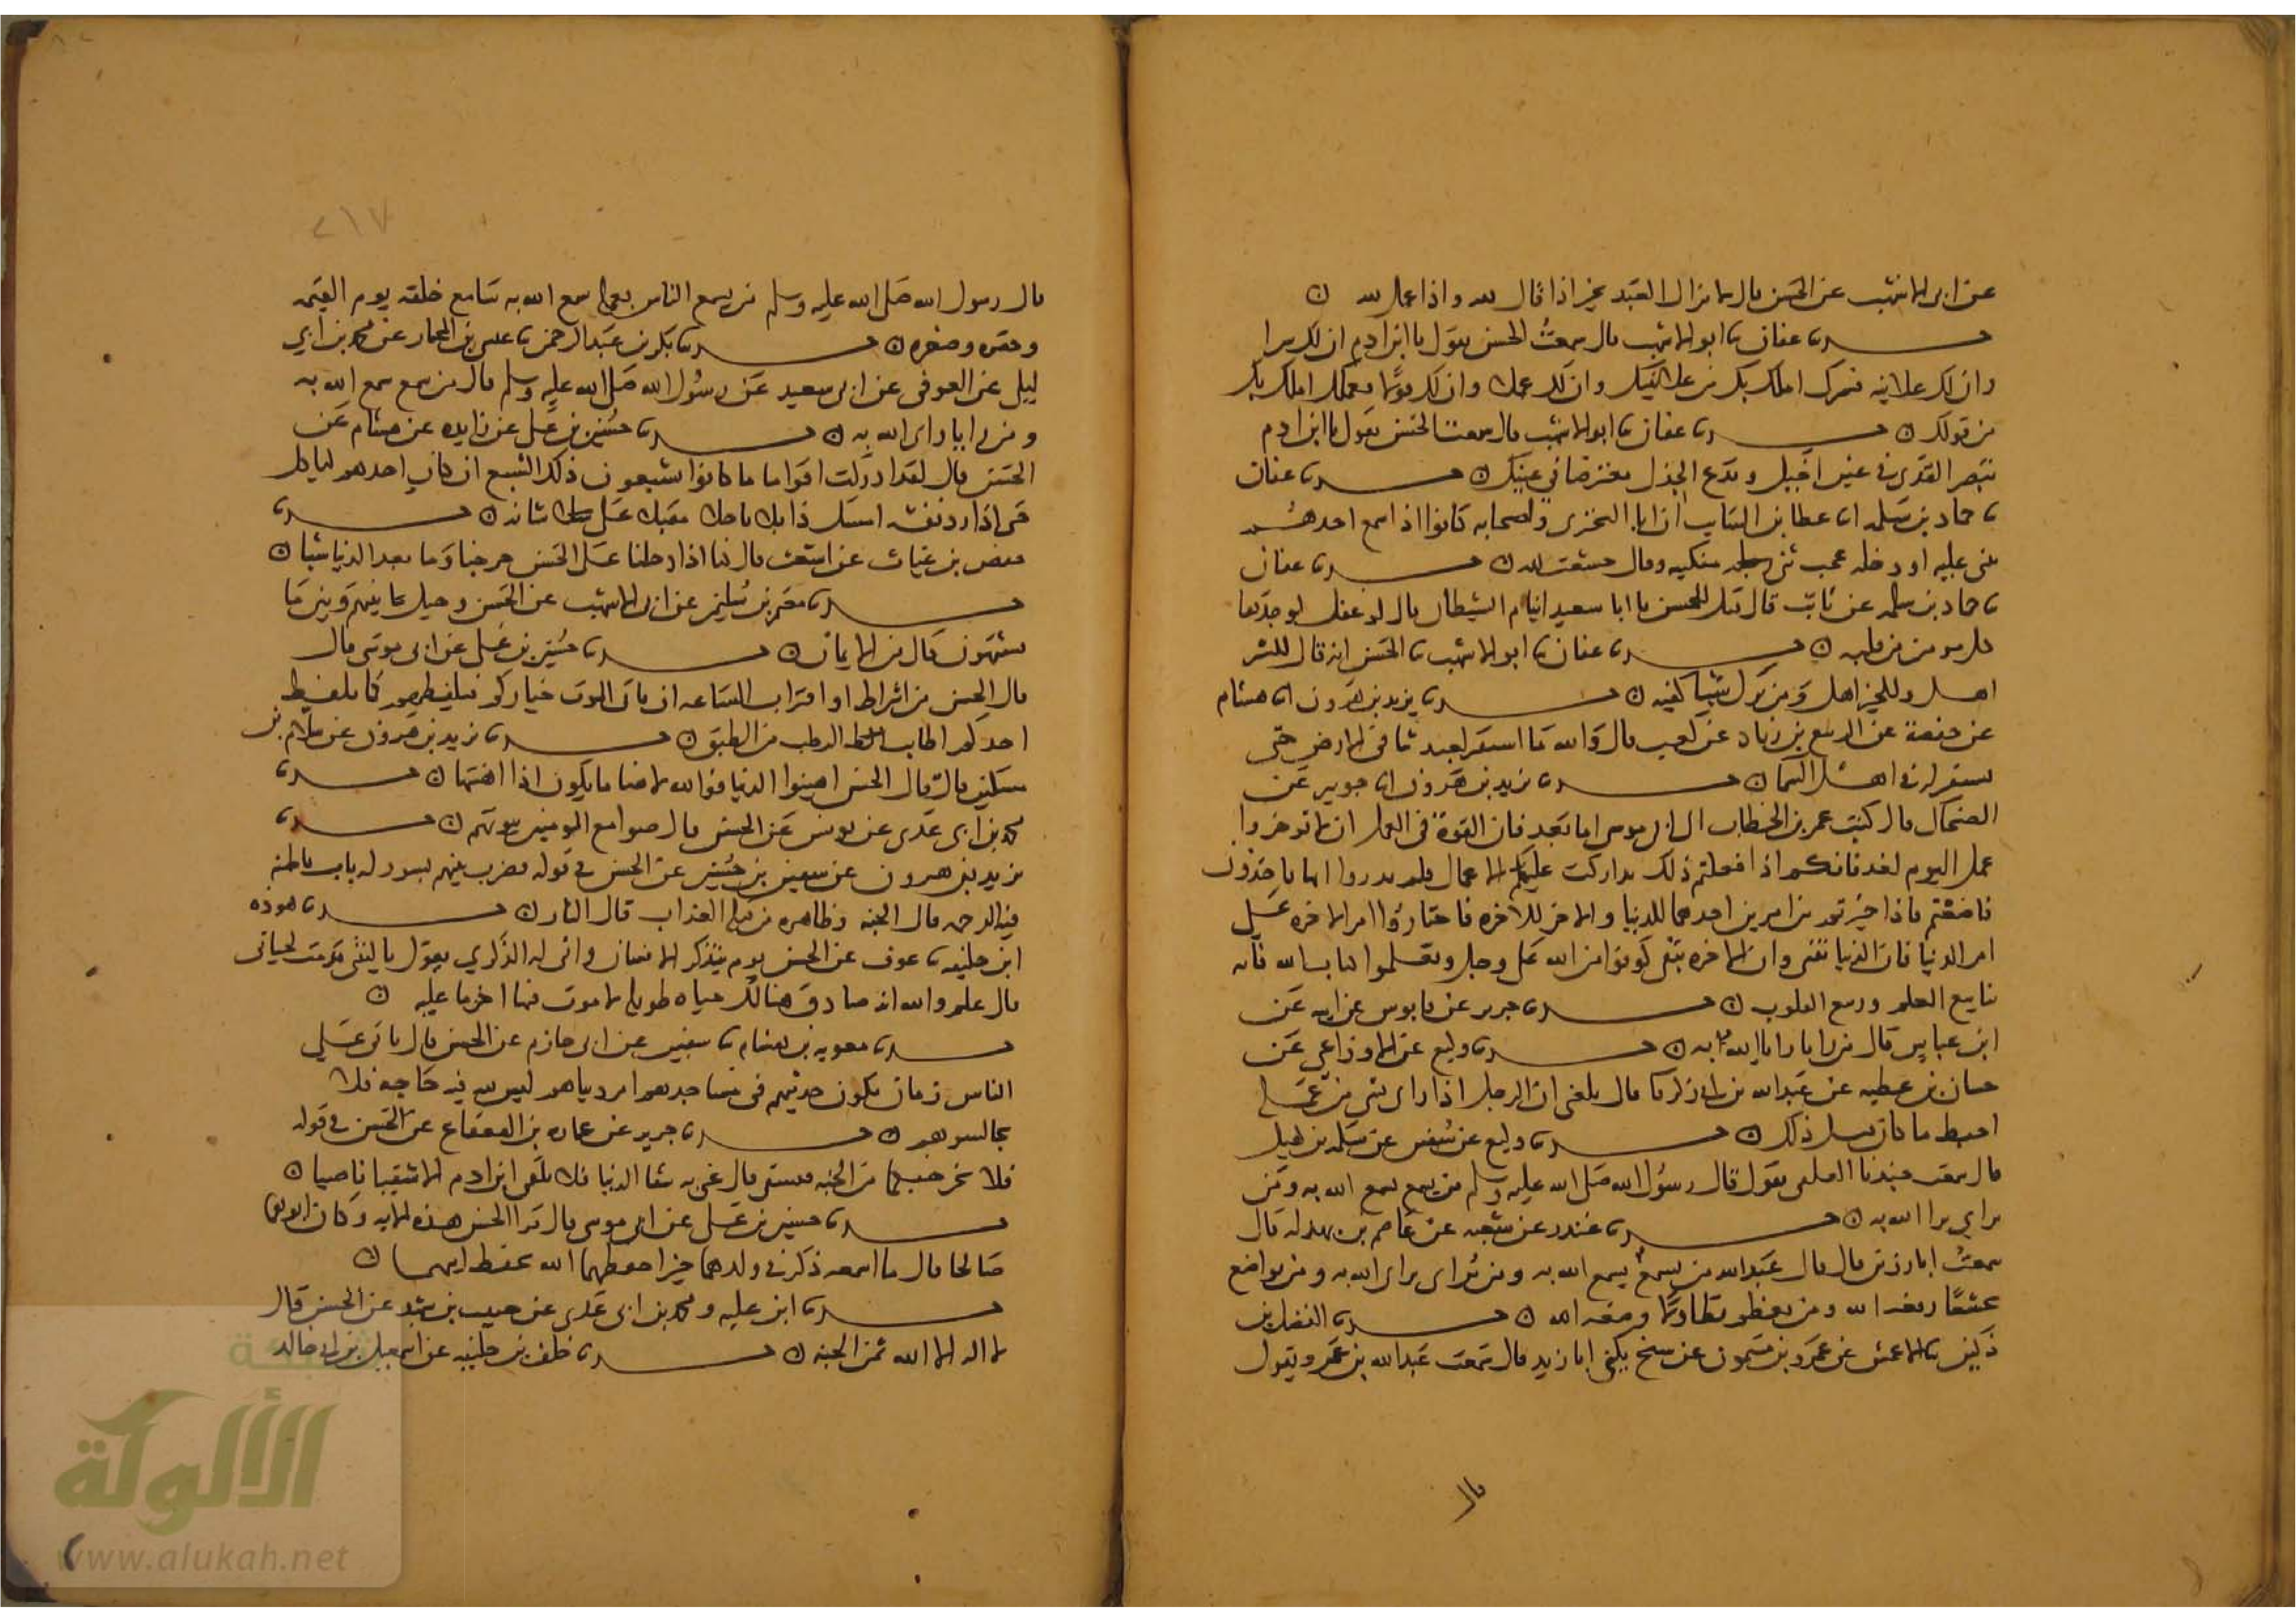 عن ابى الاشهب عن الحسن قال لا يزال العبد بخير اذا قال لله واذا عمل لله ن
حدثنا عفان ثنا ابو الاشهب قال سمعتُ الحسن يقول يا ابن ادم ان لك سرا
وان لك علانية فسرك املك بك من علانيتك وان لك عملا وان لك قولا فعملك املك بك
من قولك ن حدثنا عفان ثنا ابو الاشهب قال سمعت الحسن يقول يا ابن ادم
تبصر القذى في عين اخيك وتدع الجذل معترضا في عينك ن حدثنا عفان
ثنا حماد بن سلمه انا عطا بن السايب ان ابا البخترى واصحابه كانوا اذا سمع احدهم
يثنى عليه او دخله عجب ثنى منكبيه وقال خشعت لله ن حدثنا عفان
ثنا حماد بن سلمه عن ثابت قال قيل للحسن يا ابا سعيد اينام الشيطان قال لو غفل لوجدها
كل مومن من قلبه ن حدثنا عفان ثنا ابو الاشهب ثنا الحسن انه قال للشر
اهل وللخير اهل ومن ترك شيا كفيه ن حدثنا يزيد بن هرون انا هشام
عن حفصة عن الربيع بن زياد عن كعب قال والله ما استقر لعبد ثنا في الارض حتى
يستقر له في اهل السما ن حدثنا يزيد بن هرون انا جويبر عن
الضحاك قال كتب عمر بن الخطاب الى ابى موسى اما بعد فان القوة في العمل ان لا توخروا
عمل اليوم لغد فانكم اذا فعلتم ذلك تداركت عليكم الاعمال فلم تدروا ايها تاخذون
فاضعتم فاذا خيرتم بين امرين احدهما للدنيا والاخر للاخره فاختاروا امر الاخره على
امر الدنيا فان الدنيا تفنى وان الاخره تبقى كونوا من الله على وجل وتعلموا كتاب الله فانه
ينابيع العلم وربيع القلوب ن حدثنا جرير عن قابوس عن ابيه عن
ابن عباس قال من رايا رايا الله به ن حدثنا وكيع عن الاوزاعي عن
حسان بن عطيه عن عبد الله بن ابى زكريا قال بلغنى ان الرجل اذا راى بشى من عمله
احبط ما كان قبل ذلك ن حدثنا وكيع عن سفين عن سلمه بن كهيل
قال سمعت جندبا العلقى يقول قال رسول الله صلى الله عليه وسلم من يسمع يسمع الله به ومن
يراي يراي الله به ن حدثنا غندر عن شعبه عن عاصم بن بهدله قال
سمعتُ ابا رزين قال قال عبد الله من يسمع يسمع الله به ومن يراى يراى الله به ومن تواضع
تخشعا رفعه الله ومن تعظم تطاولا وضعه الله ن حدثنا الفضل بن
دكين ثنا الاعمش عن عمرو بن عن شيخ يكنى ابا زيد قال سمعت عبد الله بن عمرو يقول
قال
٢١٧
قال رسول الله صلى الله عليه وسلم من يسمع الناس بعمله سمع الله به سامع خلقه يوم القيمه
وحقره وصغره ن حدثنا بكر بن عبد الرحمن ثنا عيسى بن المختار عن محمد بن ابي
ليلى عن العوفى عن ابى سعيد عن رسول الله صلى الله عليه وسلم قال من سمع سمع الله به
ومن رايا راى الله به ن حدثنا حسين بن على عن زايده عن هشام عن
الحسن قال لقد ادركت اقواما ما كانوا يشبعون ذلك الشبع ان كان احدهم لياكل
حتى اذا رد نفسه امسك ذابلا ناحلا مقبلا على شانه ن حدثنا
حفص بن غياث عن اشعث قال كنا اذا دخلنا على الحسن خرجنا وما نعد الدنيا شيا ن
حدثنا معتمر بن سليمن عن ابى الاشهب عن الحسن وحيل بينهم وبين ما
يشتهون قال من الايمان ن حدثنا حسين بن على عن ابى موسى قال
قال الحسن من اشراط او اقتراب الساعه ان ياتى الموت خياركم فيلقطهم كما يلقط
احدكم اطايب الرطب من الطبق ن حدثنا يزيد بن هرون عن سلام بن
مسكين قال قال الحسن اهينوا الدنيا فوالله لاهنا ما يكون اذا اهنتها ن حدثنا
محمد بن ابى عدى عن يونس عن الحسن قال صوامع المومنين بيوتهم ن حدثنا
يزيد بن هرون عن سفين بن حسين عن الحسن في قوله فضرب بينهم بسور له باب باطنه
فيه الرحمه قال الجنه وظاهره من قبله العذاب قال النار ن حدثنا هوذه
ابن خليفه ثنا عوف عن الحسن يوم يتذكر الانسان وانى له الذكري يقول يا ليتنى قدمت لحياتى
قال علم والله انه صادق هنالك حياه طويله لا موت فيها اخر ما عليه ن
حدثنا معويه بن هشام ثنا سفين عن ابى حازم عن الحسن قال ياتى على
الناس زمان يكون حديثهم فى مساجدهم امر دنياهم ليس لله فيه حاجه فلا
تجالسوهم ن حدثنا جرير عن عماره بن القعقاع عن الحسن في قوله
فلا يخرجنكما من الجنه فتشقى قال عنى به شقا الدنيا فلا تلقى ابن ادم الا شقيا ناصبا ن
حدثنا حسين بن على عن ابى موسى قال قرا الحسن هذه الايه وكان ابوهما
صالحا قال ما اسمعه ذكر في ولدهما خيرا حفظهما الله بحفظ ابيهما ن
حدثنا ابن عليه ومحمد بن ابى عدى عن حبيب بن شهيد عن الحسن قال
لا اله الا الله ثمن الجنه ن حدثنا خلف بن خليفه عن اسمعيل بن ابى خالد
شبكة
الألوكة
www.alukah.net